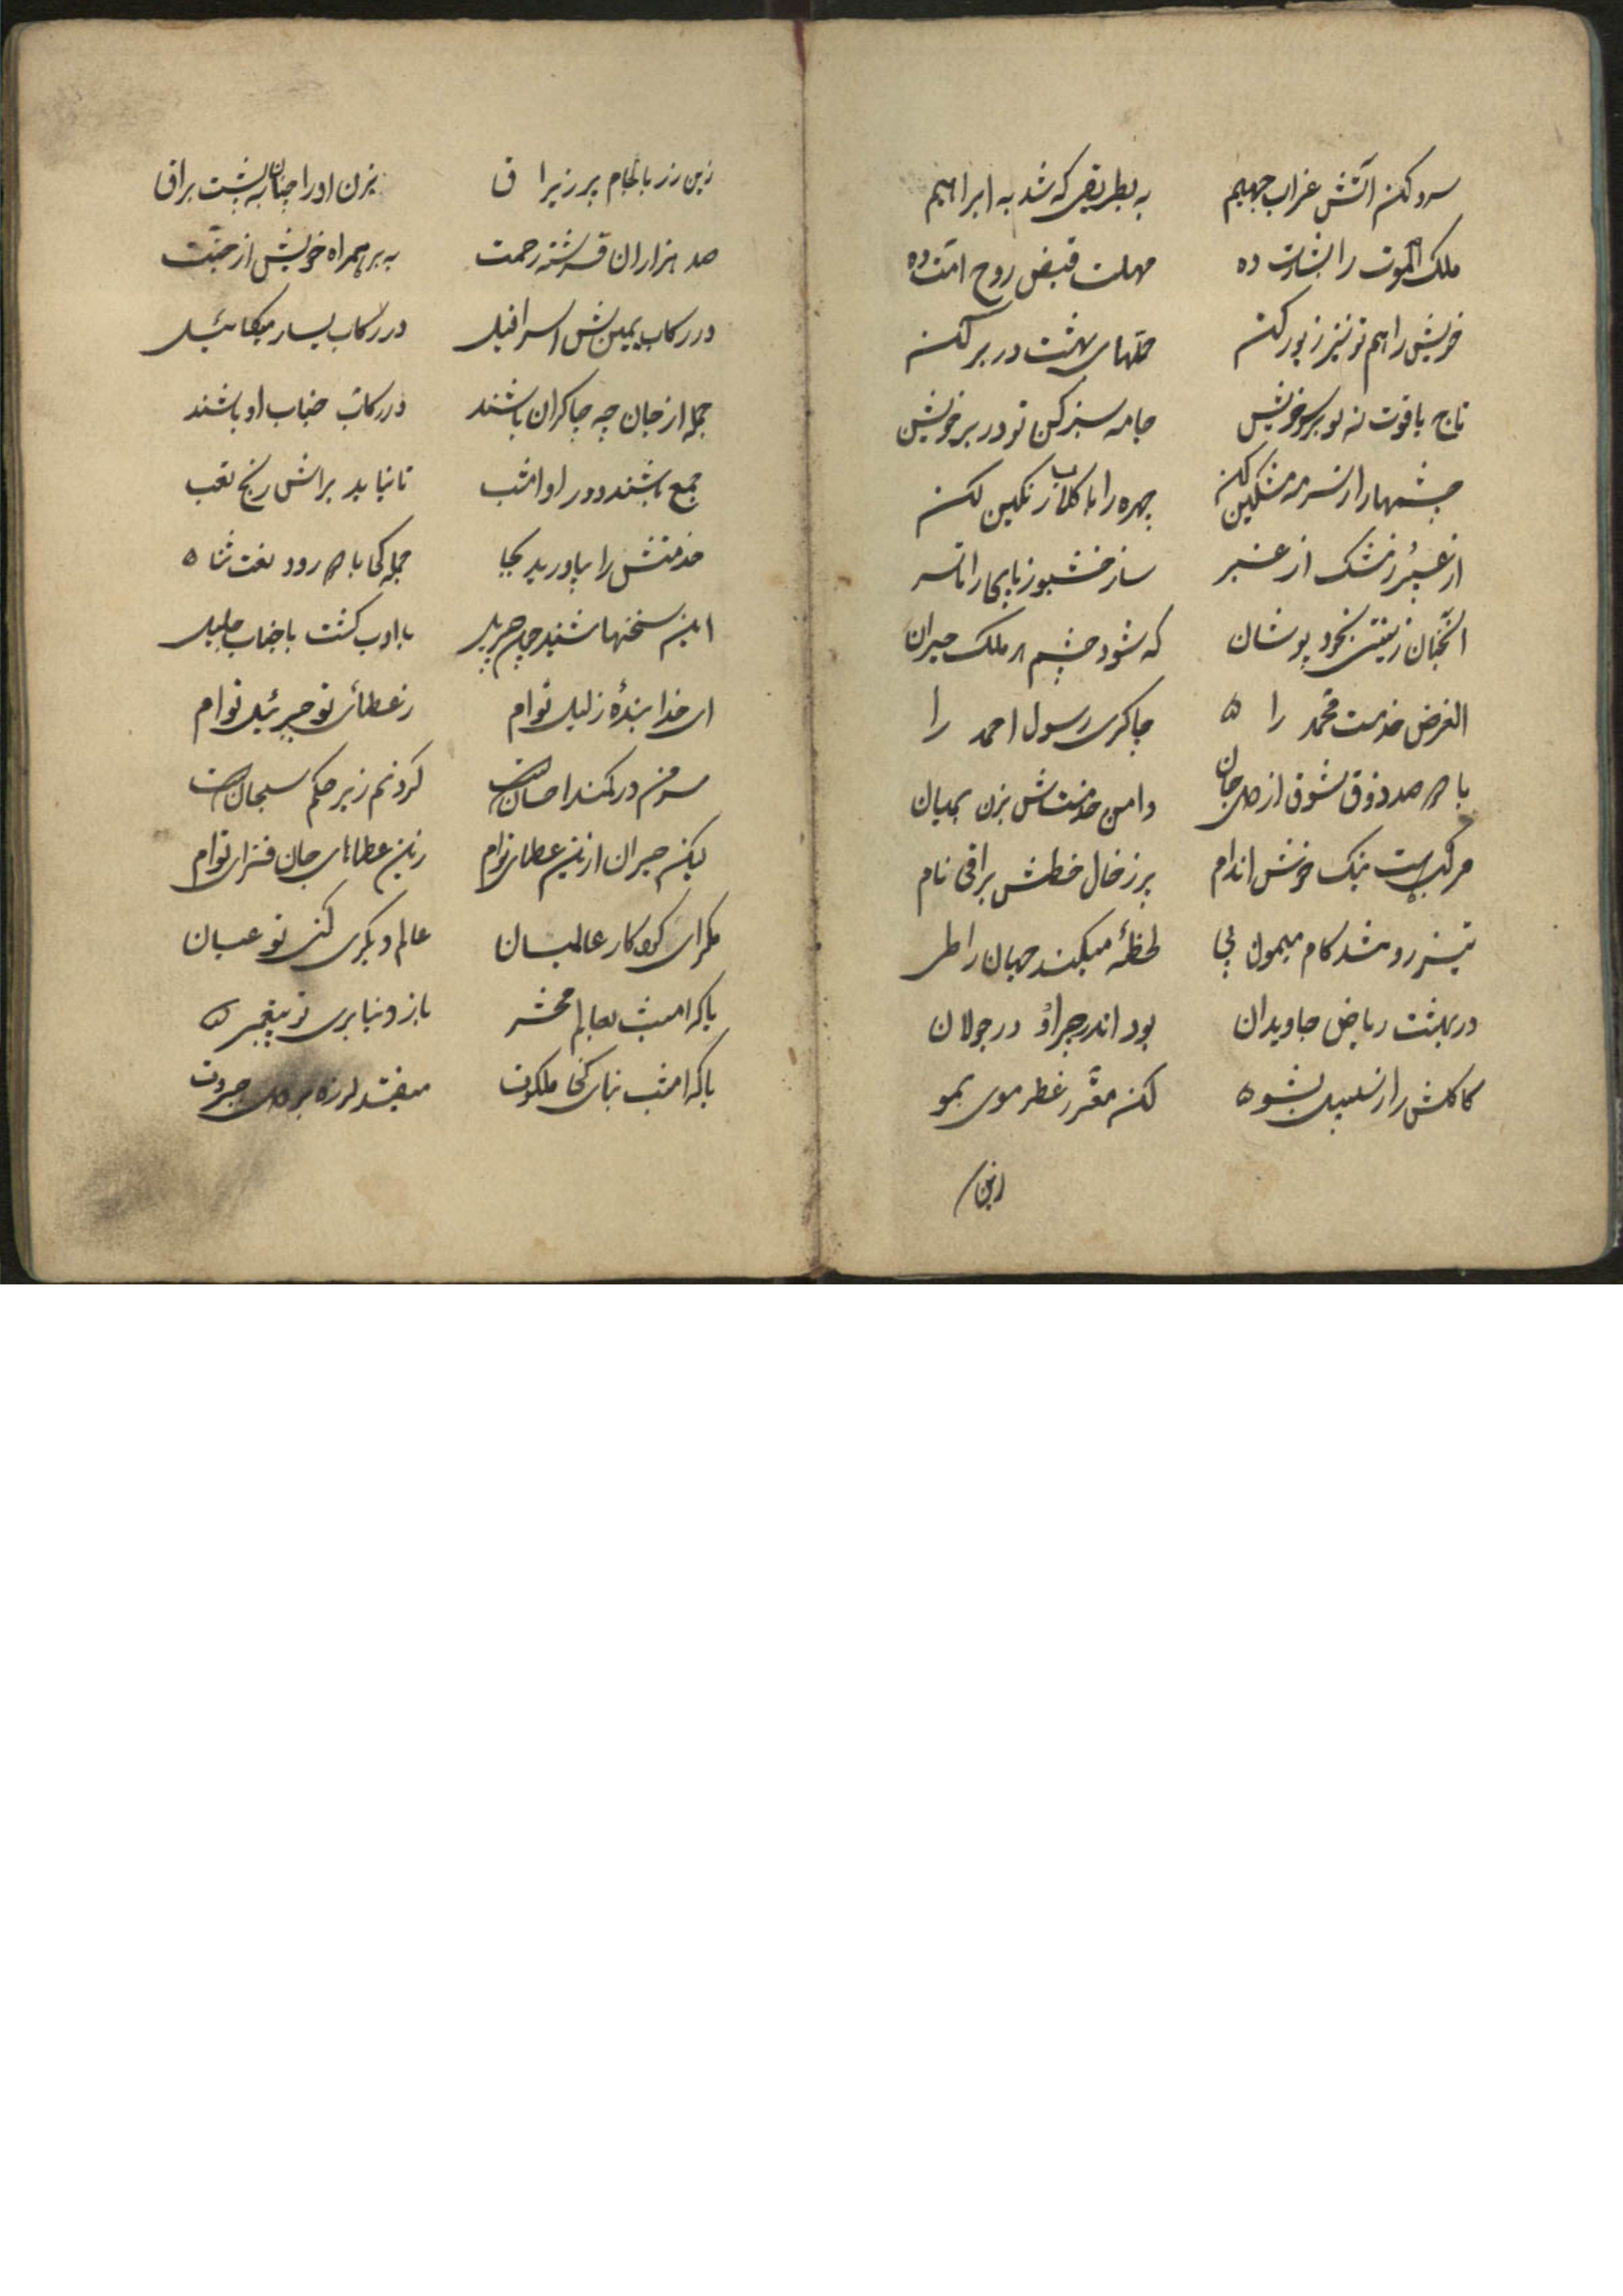 سرد کن آتش عذاب جهیم به طریقی که شد به ابراهیم
ملک الموت را بشارت ده مهلت قبض روح امت ده
خویش را هم تو نیز زیور کن حلهای بهشت در بر کن
تاج یاقوت نه تو بر سر خویش جامه سبز کن تو در بر خویش
چشمها را از سرمه مشکین کن چهره را با گلاب رنگین کن
از عبیر و ز مشک از عنبر ساز خشبو ز پای را تا سر
آنچنان زینتی بخود پوشان که شود چشم هر ملک حیران
الغرض خدمت محمد را چاکری رسول احمد را
با هر صد ذوق شوق از دل جان دامن خدمتش بزن بمیان
مرکبی هست نیک خوش اندام پر ز خال خطش براقی نام
تیز رو تند کام میمون پی لحظهٔ میکند جهان را طی
در بهشت ریاض جاویدان بود اندر چراؤ در جولان
کاکلش را از سلسبیل بشو کن معطر ز عطر موی بمو
زین زر
زین زر با لجام پر زیراق بزن او را چنان به پشت براق
صد هزاران فرشته رحمت به بر همراه خویش از جنت
در رکاب یمینش اسرافیل در رکاب یسار میکائیل
جمله از جان چه چاکران باشند در رکاب جناب او باشند
جمع باشند دور او امشب تا نیاید براتش رنج تعب
خدمتش را بیاورید بجا جملگی با درود نعت ثنا
این سخنها شنید چون جبریل با ادب گشت با جناب جلیل
ای خدا بندهٔ ذلیل توام ز عطای تو جبرئیل توام
سر من در کمند احسانت گردنم زیر حکم سبحانت
لیکن حیران از این عطای توام زین عطاهای جان فزای توام
مگر ای کردکار عالمیان عالم دیگری کنی تو عیان
یا که امشب بعالم محشر باز دنیا بری تو پیغمبر
یا که امشب بنای ملکوت میفتد لرزه بر جبروت